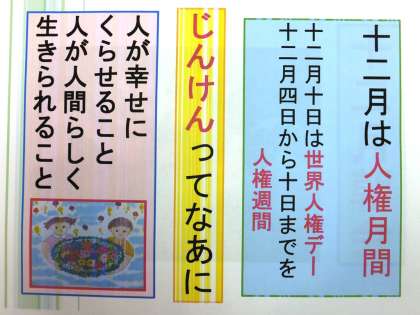 十二月は人権月間
十二月十日は世界人権デー
十二月四日から十日までを
人権週間
じんけんってなあに
人が幸せに
くらせること
人が人間らしく
生きられること